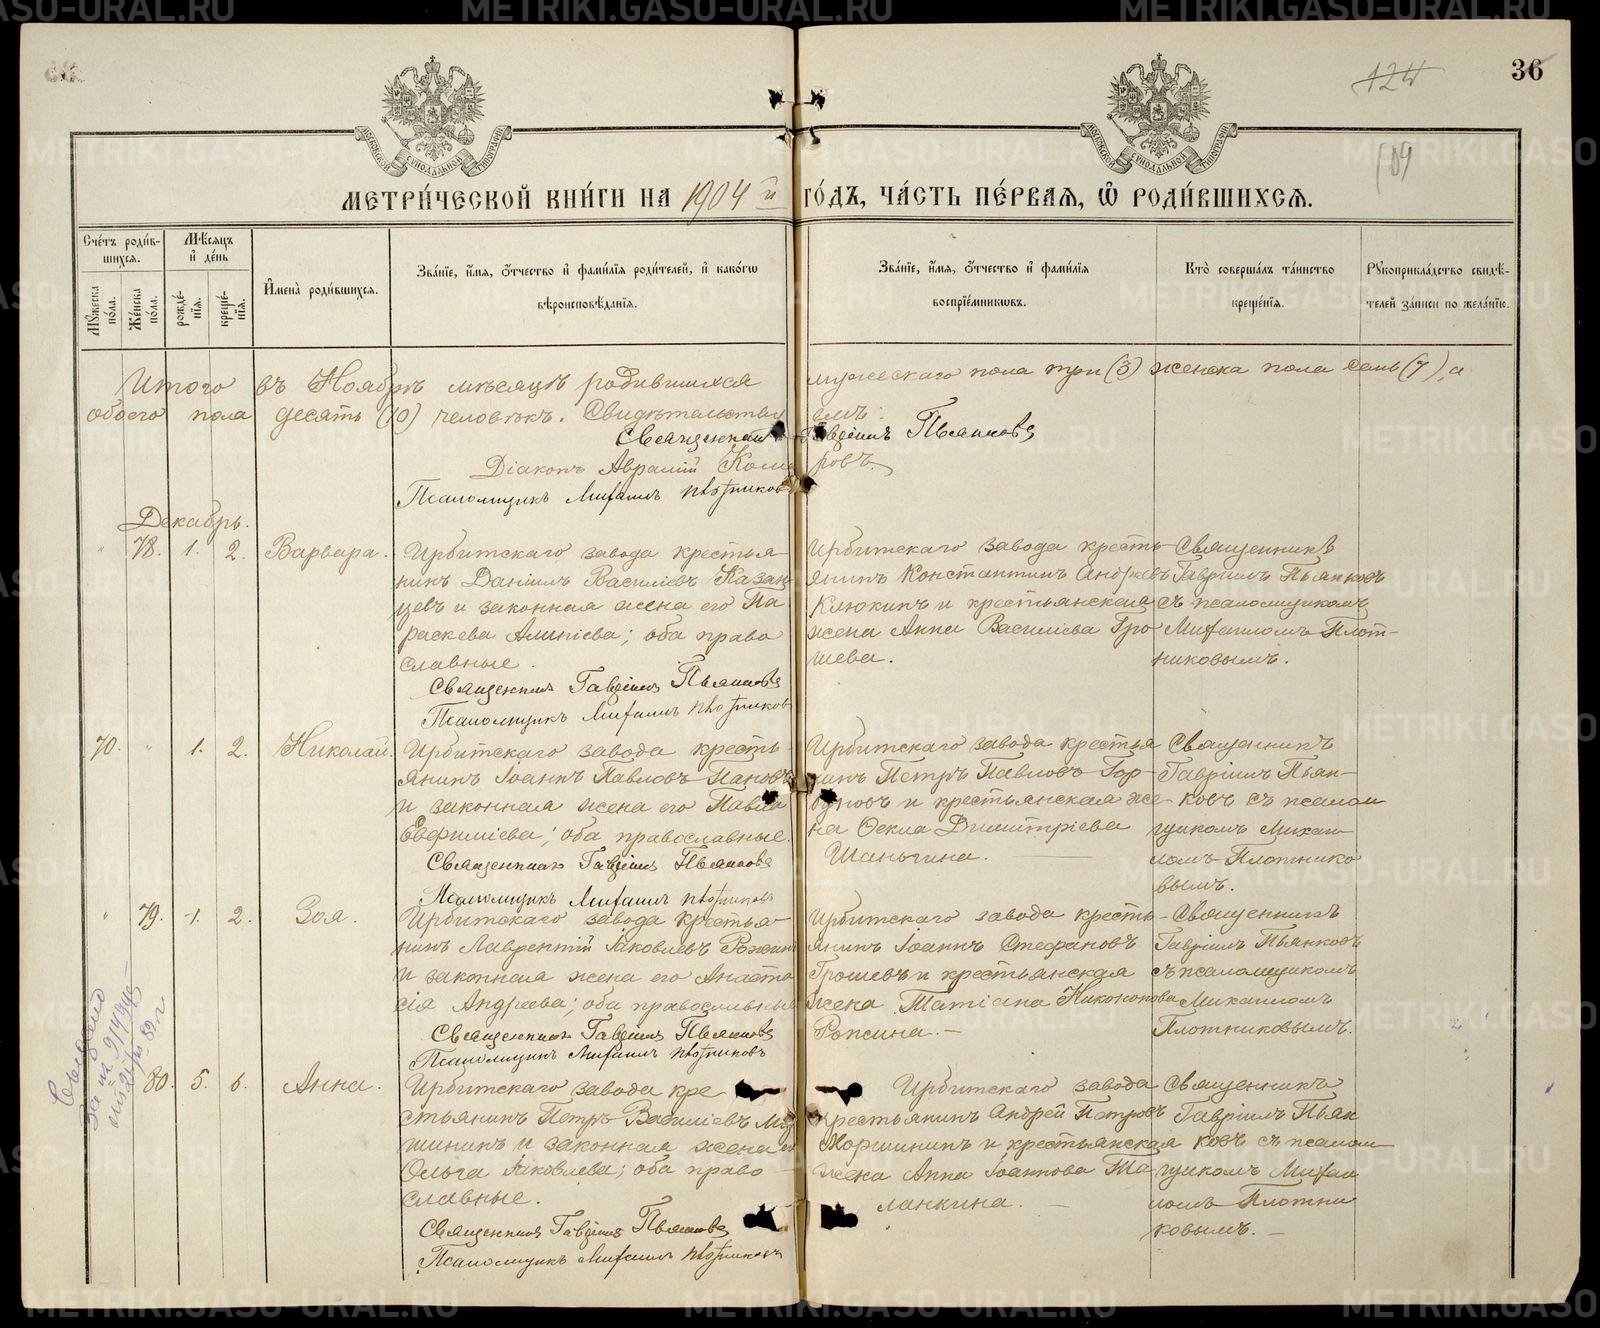 36
124
109
МОСКОВСКОЙ СѴНОДАЛЬНОЙ ТИПОГРАФІИ
МОСКОВСКОЙ СѴНОДАЛЬНОЙ ТИПОГРАФІИ
МЕТРИ́ЧЕСКОЙ КНИ́ГИ НА 1904 й ГО́ДЪ, ЧА́СТЬ ПЕ́РВАѦ, Ѡ҆ РОДИ́ВШИХСѦ.
Сче́тъ роди́вшихсѧ.
Мѣ́сѧцъ и҆ де́нь
И҆мена̀ роди́вшихсѧ.
Зва́нїе, и҆́мѧ, ѻ҆́тчество и҆ фамѝлїѧ роди́телей, и҆ како́гѡ вѣроисповѣ́данїѧ.
Зва́нїе, и҆́мѧ, ѻ҆́тчество и҆ фамѝлїѧ воспрїе́мникѡвъ.
Кто̀ соверша́лъ та́инство креще́нїѧ.
Рꙋкоприкла́дство свидѣ́телей за́писи по жела́нїю.
Мꙋ́жеска по́ла.
Же́нска по́ла.
рожде́нїѧ.
креще́нїѧ.
Итого въ Ноябрѣ мѣсяцѣ родившихся мужескаго пола три (3) женска пола семь (7), а
обоего пола десять (10) человѣкъ. Свидѣтельствуемъ:
Священникъ Гавріилъ Пьянковъ
Діаконъ Авраамій Комаровъ.
Псаломщикъ Михаилъ Плотниковъ
Декабрь.
" 78. 1. 2. Варвара.
Ирбитскаго завода крестья-
нинъ Даніилъ Василіевъ Казан-
цевъ и законная жена его Па
раскева Алипіева; оба право
славные.
Священникъ Гавріилъ Пьянковъ
Псаломщикъ Михаилъ Плотниковъ
Ирбитскаго завода кресть-
янинъ Константинъ Андреевъ
Клюкинъ и крестьянская
жена Анна Василіева Гро
шева.
Священникъ
Гавріилъ Пьянковъ
съ псаломщикомъ
Михаиломъ Плот-
никовымъ.
70. " 1. 2. Николай.
Ирбитскаго завода кресть-
янинъ Іоаннъ Павловъ Пановъ
и законная жена его Павла
Евфиміева; оба православные.
Священникъ Гавріилъ Пьянковъ
Псаломщикъ Михаилъ Плотниковъ
Ирбитскаго завода крестья
нинъ Петръ Павловъ Гор-
буновъ и крестьянская же-
на Ѳекла Димитріева
Шаньгина.
Священникъ
Гавріилъ Пьян-
ковъ съ псалом
щикомъ Михаи-
ломъ Плотнико
вымъ.
" 79. 1. 2. Зоя.
Ирбитскаго завода крестья-
нинъ Лаврентій Іаковлевъ
и законная жена его Анаста
сія Андреева; оба православные
Священникъ Гавріилъ Пьянковъ
Псаломщикъ Михаилъ Плотниковъ
Ирбитскаго завода кресть-
янинъ Іоаннъ Стефановъ
Грошевъ и крестьянская
жена Татіана Никонова
Священникъ
Гавріилъ Пьянковъ
съ псаломщикомъ
Михаиломъ
Плотниковымъ.
80. 5. 6. Анна.
Ирбитскаго завода кре
стьянинъ Петръ Василіевъ
и законная жена
Ольга Іаковлева; оба право
славные.
Священникъ Гавріилъ Пьянковъ
Псаломщикъ Михаилъ Плотниковъ
Ирбитскаго завода
крестьянинъ Андрей Петровъ
Моршининъ и крестьянская
жена Анна Іоаннова Та-
ланкина.
Священникъ
Гавріилъ Пьян
ковъ съ псалом-
щикомъ Михаи
ломъ Плотни
ковымъ.
METRIKI.GASO-URAL.RU